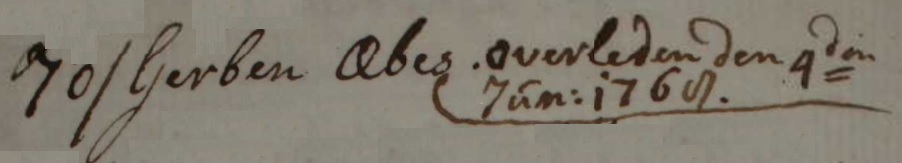 70/ Gerben Æbes. overleden den 4den
Jün: 1768.